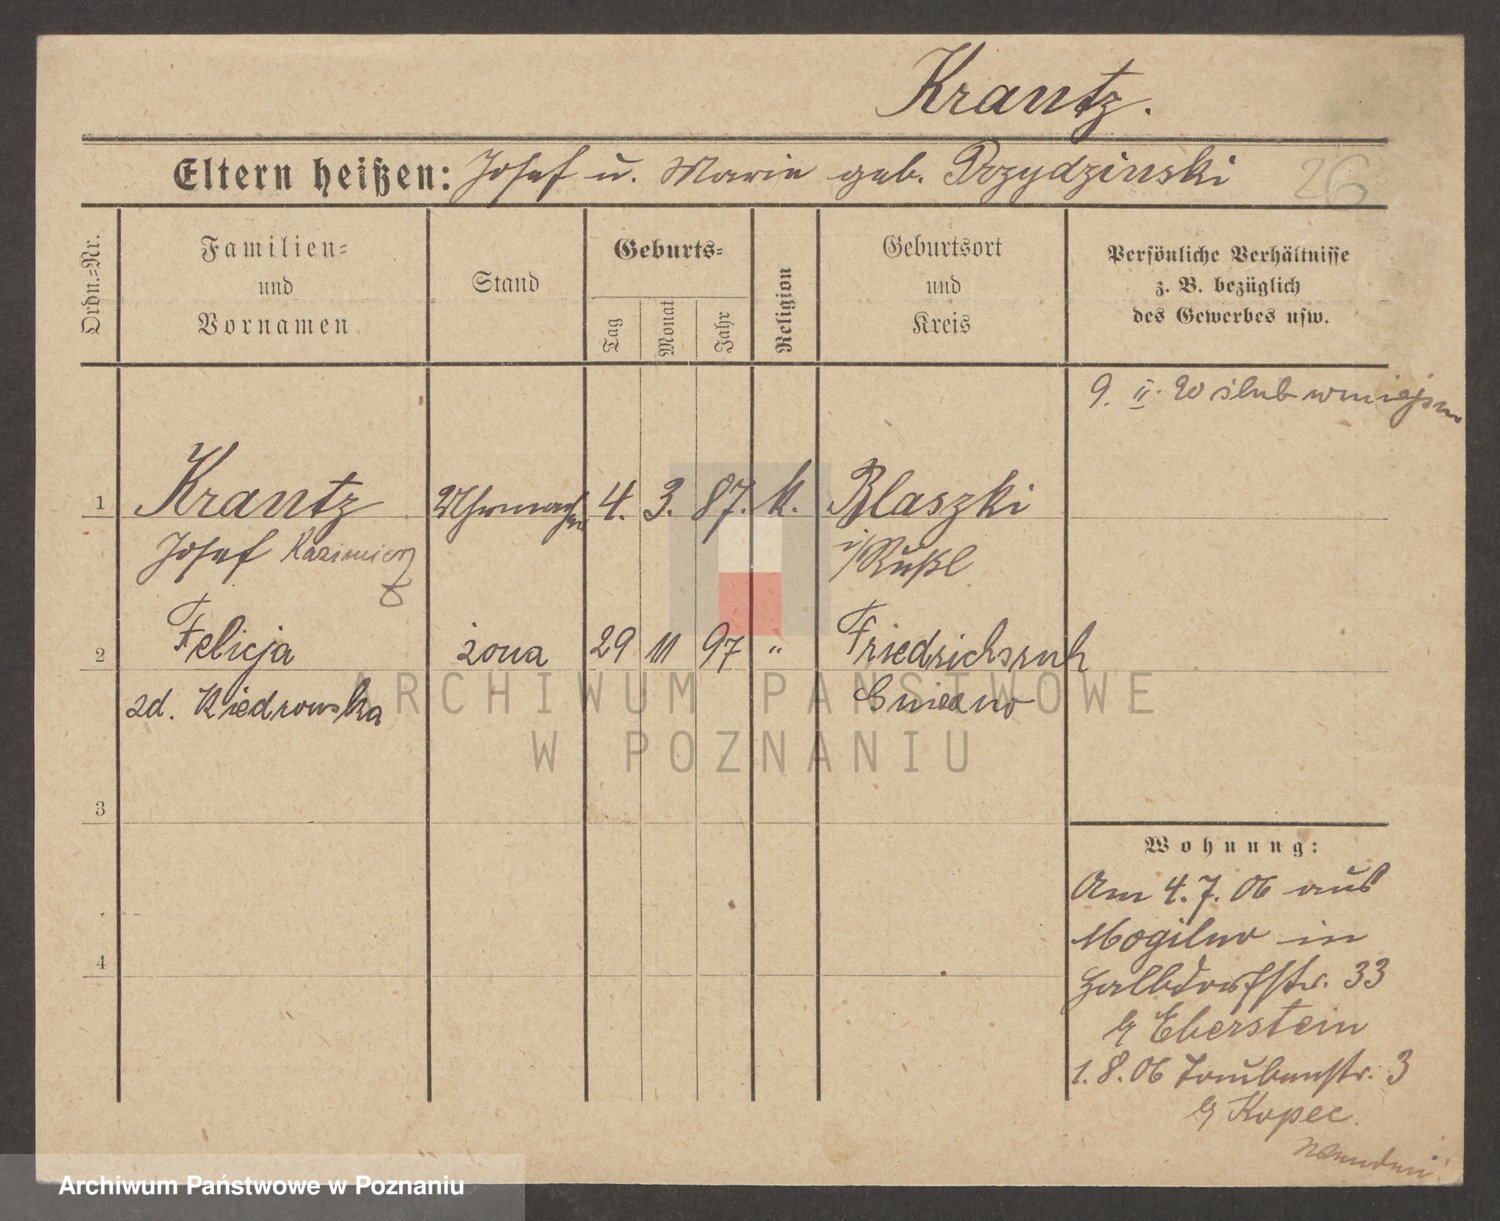 Krantz.
Eltern heißen: Josef u. Marie geb. Przydzinski
26
Ordn.=Nr.
Familien=
und
Vornamen
Stand
Geburts=
Tag
Monat
Jahr
Religion
Geburtsort
und
Kreis
Persönliche Verhältnisse
z. B. bezüglich
des Gewerbes usw.
9. II. 20 ślub
1 Krantz Uhrmacher 4. 3. 87. k. Blaszki
Josef Kazimierz i/Rußl
2 Felicja żona 29 11 97 " Friedrichsruh
zd. Kiedrowska Gniezno
3
4
Wohnung:
Am 4.7.06 aus
Mogilno in
Halbdorfstr. 33
b/ Eberstein
1.8.06 Taubenstr. 3
b/ Kopec.
ARCHIWUM PAŃSTWOWE
W POZNANIU
Archiwum Państwowe w Poznaniu